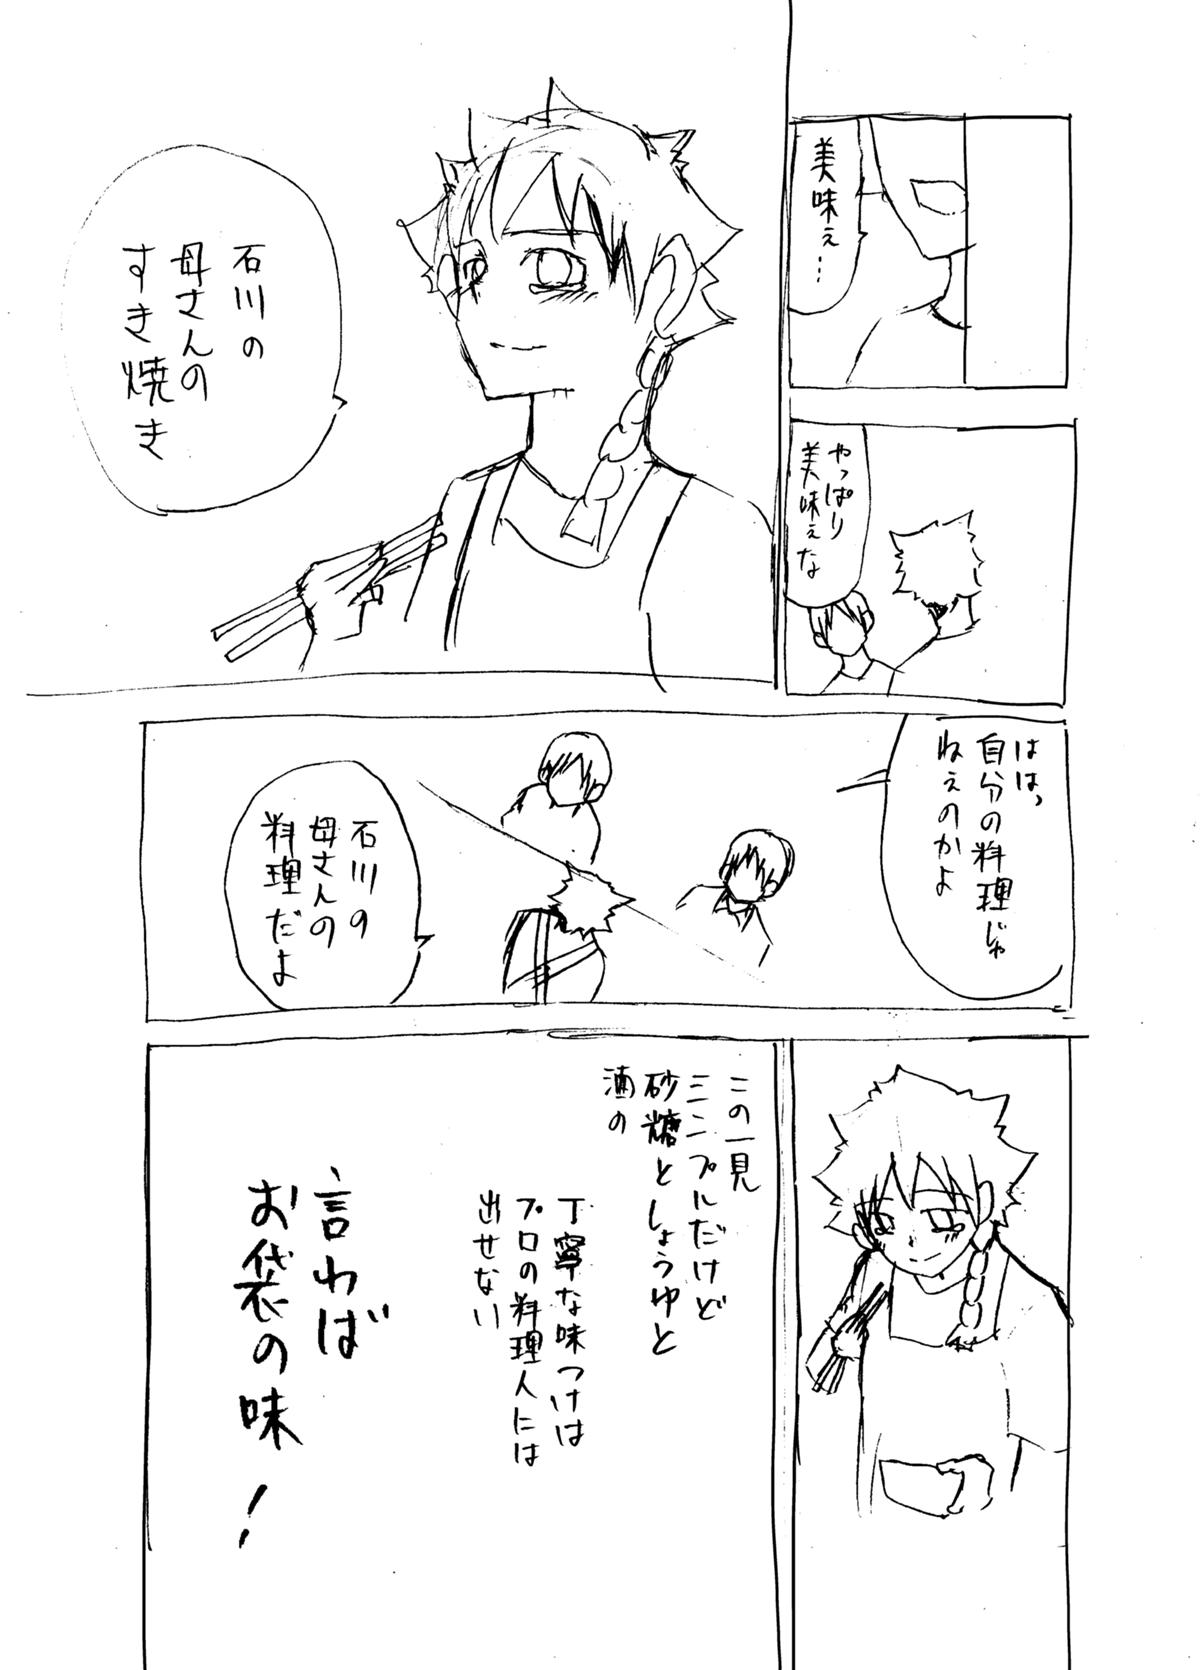 美味ぇ…
やっぱり
美味ぇな
石川の
母さんの
すき焼き
はは、
自分の料理じゃ
ねぇのかよ
石川の
母さんの
料理だよ
この一見
シンプルだけど
砂糖としょうゆと
酒の
丁寧な味つけは
プロの料理人には
出せない
言わば
お袋の味！